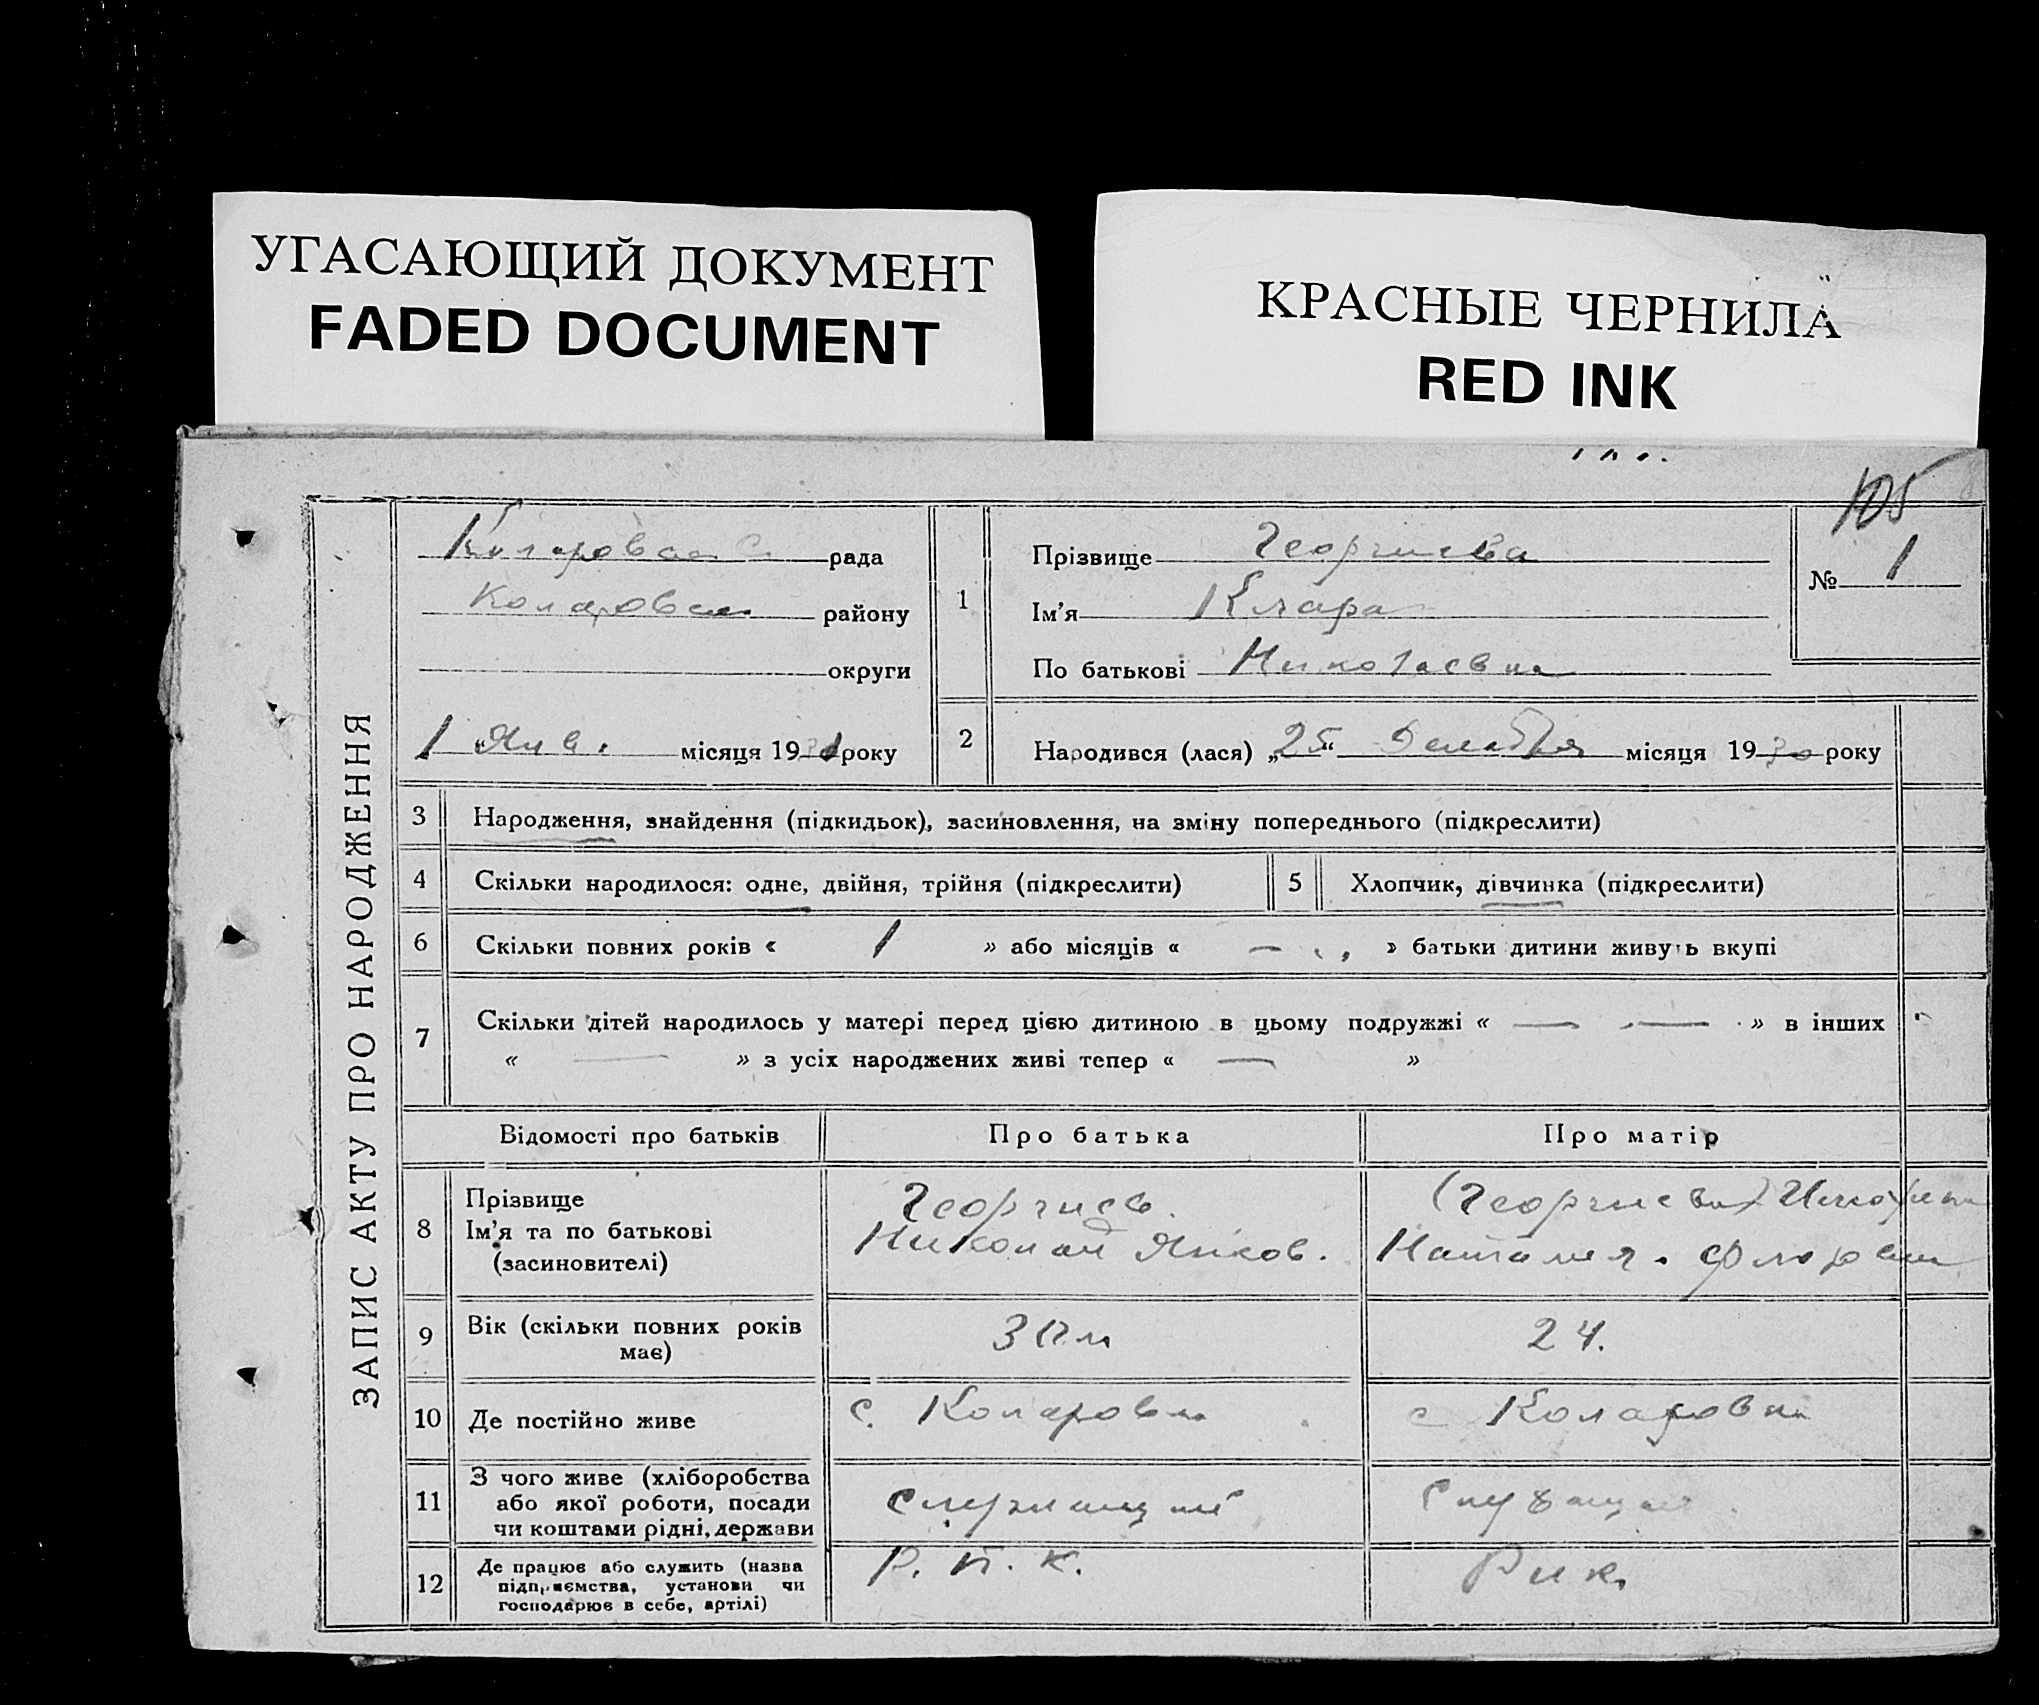 УГАСАЮЩИЙ ДОКУМЕНТ
FADED DOCUMENT
КРАСНЫЕ ЧЕРНИЛА
RED INK
105
ЗАПИС АКТУ ПРО НАРОДЖЕННЯ
рада
району
округи
1 Янв. місяця 1931 року
1
Прізвище Георгиева
Ім'я Клара
По батькові Николаевна
№ 1
2
Народився (лася) „25“ Декабря місяця 1930 року
3 Народження, знайдення (підкидьок), засиновлення, на зміну попереднього (підкреслити)
4 Скільки народилося: одне, двійня, трійня (підкреслити)
5 Хлопчик, дівчинка (підкреслити)
6 Скільки повних років « 1 » або місяців « — » батьки дитини живуть вкупі
7 Скільки дітей народилось у матері перед цією дитиною в цьому подружжі « — — » в інших
« — » з усіх народжених живі тепер « — »
Відомості про батьків
Про батька
Про матір
8 Прізвище
Ім'я та по батькові
(засиновителі)
Георгиев.
Николай Яков.
(Георгиева)
Наталия.
9 Вік (скільки повних років
має)
24.
10 Де постійно живе
с. Коларовка
с Коларовка
11 З чого живе (хліборобства
або якої роботи, посади
чи коштами рідні, держави
служащий
Служащая
12 Де працює або служить (назва
підприємства, установи чи
господарює в себе, артілі)
Р. П. К.
Рик.